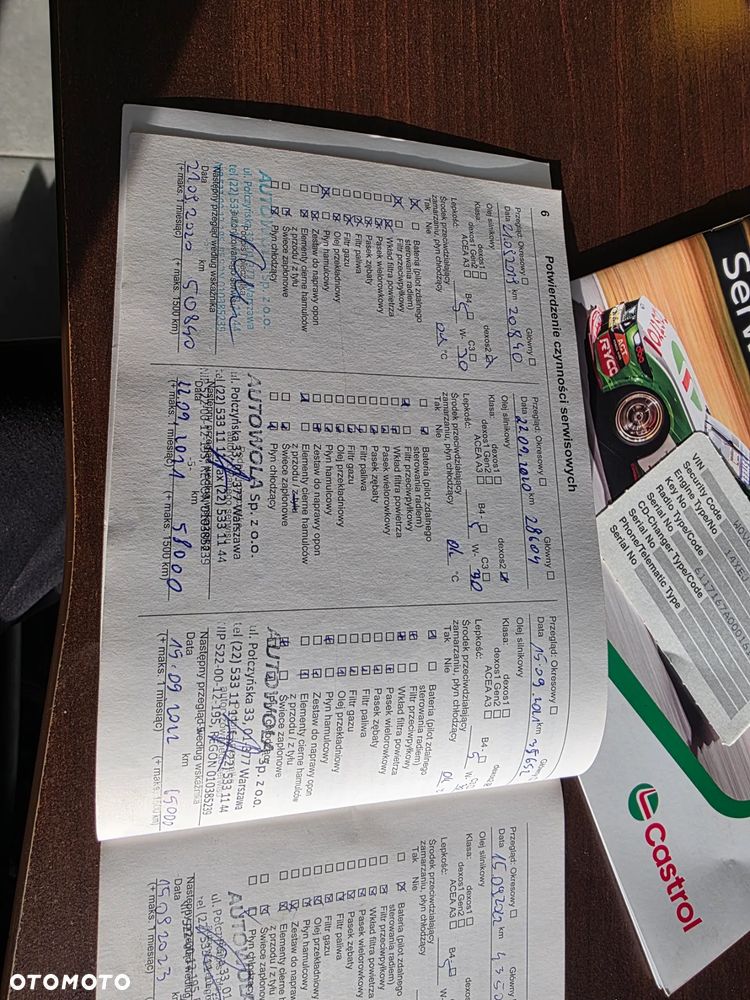 6
Potwierdzenie czynności serwisowych
Przegląd: Okresowy □ Główny □
Data 21.09.2019 km 20840
Olej silnikowy dexos2
Klasa: dexos1 □
dexos1 Gen2 □ C3 □
ACEA A3 □ B4 □
Lepkość: 5 W- 30
Środek przeciwdziałający
zamarzaniu, płyn chłodzący °C
Tak Nie
Bateria (pilot zdalnego
sterowania radiem)
Filtr przeciwpyłkowy
Wkład filtra powietrza
Pasek wielorowkowy
Pasek zębaty
Filtr paliwa
Filtr gazu
Olej przekładniowy
Płyn hamulcowy
Zestaw do naprawy opon
Elementy cierne hamulców
z przodu / z tyłu
Świece zapłonowe
Płyn chłodzący
ul. Połczyńska
Następny przegląd według wskaźnika
Data km
21.09.2020 50840
(+ maks. 1 miesiąc) (+ maks. 1500 km)
Przegląd: Okresowy □ Główny □
Data 22.09.2020 km 28604
Olej silnikowy dexos2
Klasa: dexos1 □
dexos1 Gen2 □ C3 □
ACEA A3 □ B4 □
Lepkość: 5 W- 30
Środek przeciwdziałający
zamarzaniu, płyn chłodzący ok °C
Tak Nie
Bateria (pilot zdalnego
sterowania radiem)
Filtr przeciwpyłkowy
Wkład filtra powietrza
Pasek wielorowkowy
Pasek zębaty
Filtr paliwa
Filtr gazu
Olej przekładniowy
Płyn hamulcowy
Zestaw do naprawy opon
Elementy cierne hamulców
z przodu / z tyłu
Świece zapłonowe
Płyn chłodzący
AUTOWOLA Sp. z o.o.
ul. Połczyńska 33, 01-377 Warszawa
tel (22) 533 11 11, fax (22) 533 11 44
Data km
22.09.2021 58000
(+ maks. 1 miesiąc) (+ maks. 1500 km)
Przegląd: Okresowy □
Data 15.09.2021 km 38652
Olej silnikowy
Klasa: dexos1 □
dexos1 Gen2 □
ACEA A3 □ B4
Lepkość: 5
Środek przeciwdziałający
zamarzaniu, płyn chłodzący ok
Tak Nie
Bateria (pilot zdalnego
sterowania radiem)
Filtr przeciwpyłkowy
Wkład filtra powietrza
Pasek wielorowkowy
Pasek zębaty
Filtr paliwa
Filtr gazu
Olej przekładniowy
Płyn hamulcowy
Zestaw do naprawy opon
Elementy cierne hamulców
z przodu / z tyłu
Świece zapłonowe
AUTOWOLA Sp. z o.o.
ul. Połczyńska 33, 01-377 Warszawa
tel (22) 533 11 11, fax (22) 533 11 44
NIP 522-00-12-195, REGON 010385239
Następny przegląd według wskaźnika
Data km
15.09.2022 65000
(+ maks. 1 miesiąc) (+ maks. 1500 km)
Przegląd: Okresowy □ Główny
Data 15.09.2022 km
Olej silnikowy
Klasa: dexos1 □
dexos1 Gen2 □
ACEA A3 □ B4
Lepkość: 5
Środek przeciwdziałający
zamarzaniu, płyn chłodzący
Tak Nie
Bateria (pilot zdalnego
sterowania radiem)
Filtr przeciwpyłkowy
Wkład filtra powietrza
Pasek wielorowkowy
Pasek zębaty
Filtr paliwa
Filtr gazu
Olej przekładniowy
Płyn hamulcowy
Zestaw do naprawy
Elementy cierne
z przodu / z tyłu
Świece zapłonowe
Płyn
Następny przegląd według
Data
15.09.2023
(+ maks. 1 miesiąc)
VIN
Security Code
Engine Type/No
Key No
Radio Type/Code
Serial No
CD-Changer Type/Code
Serial No
Phone/Telematic Type
Serial No
RYCO
AGT
Castrol
OTOMOTO